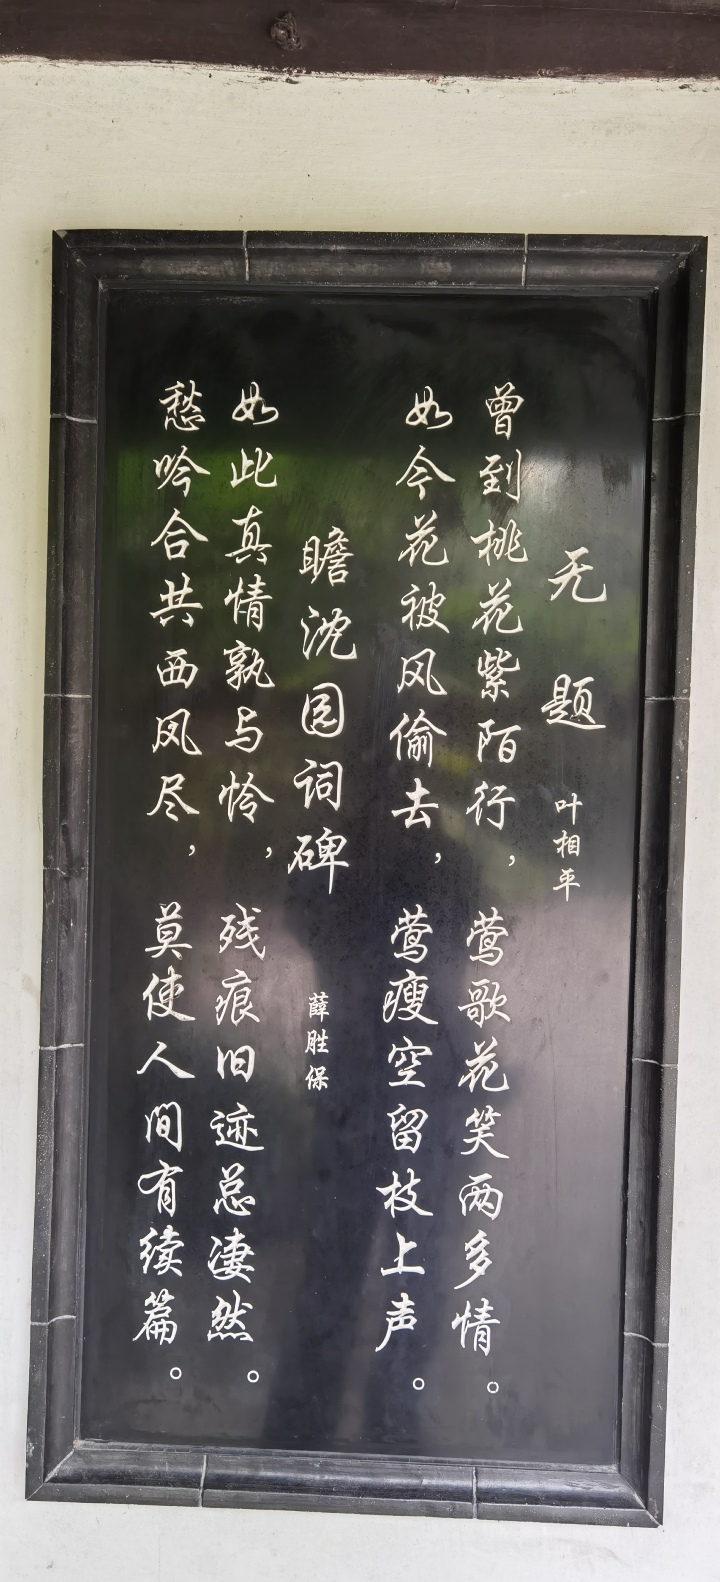 无题 叶相平
曾到桃花紫陌行，莺歌花笑两多情。
如今花被风偷去，莺瘦空留枝上声。
瞻沈园词碑 薛胜保
如此真情孰与怜，残痕旧迹总凄然。
愁吟合共西风尽，莫使人间有续篇。